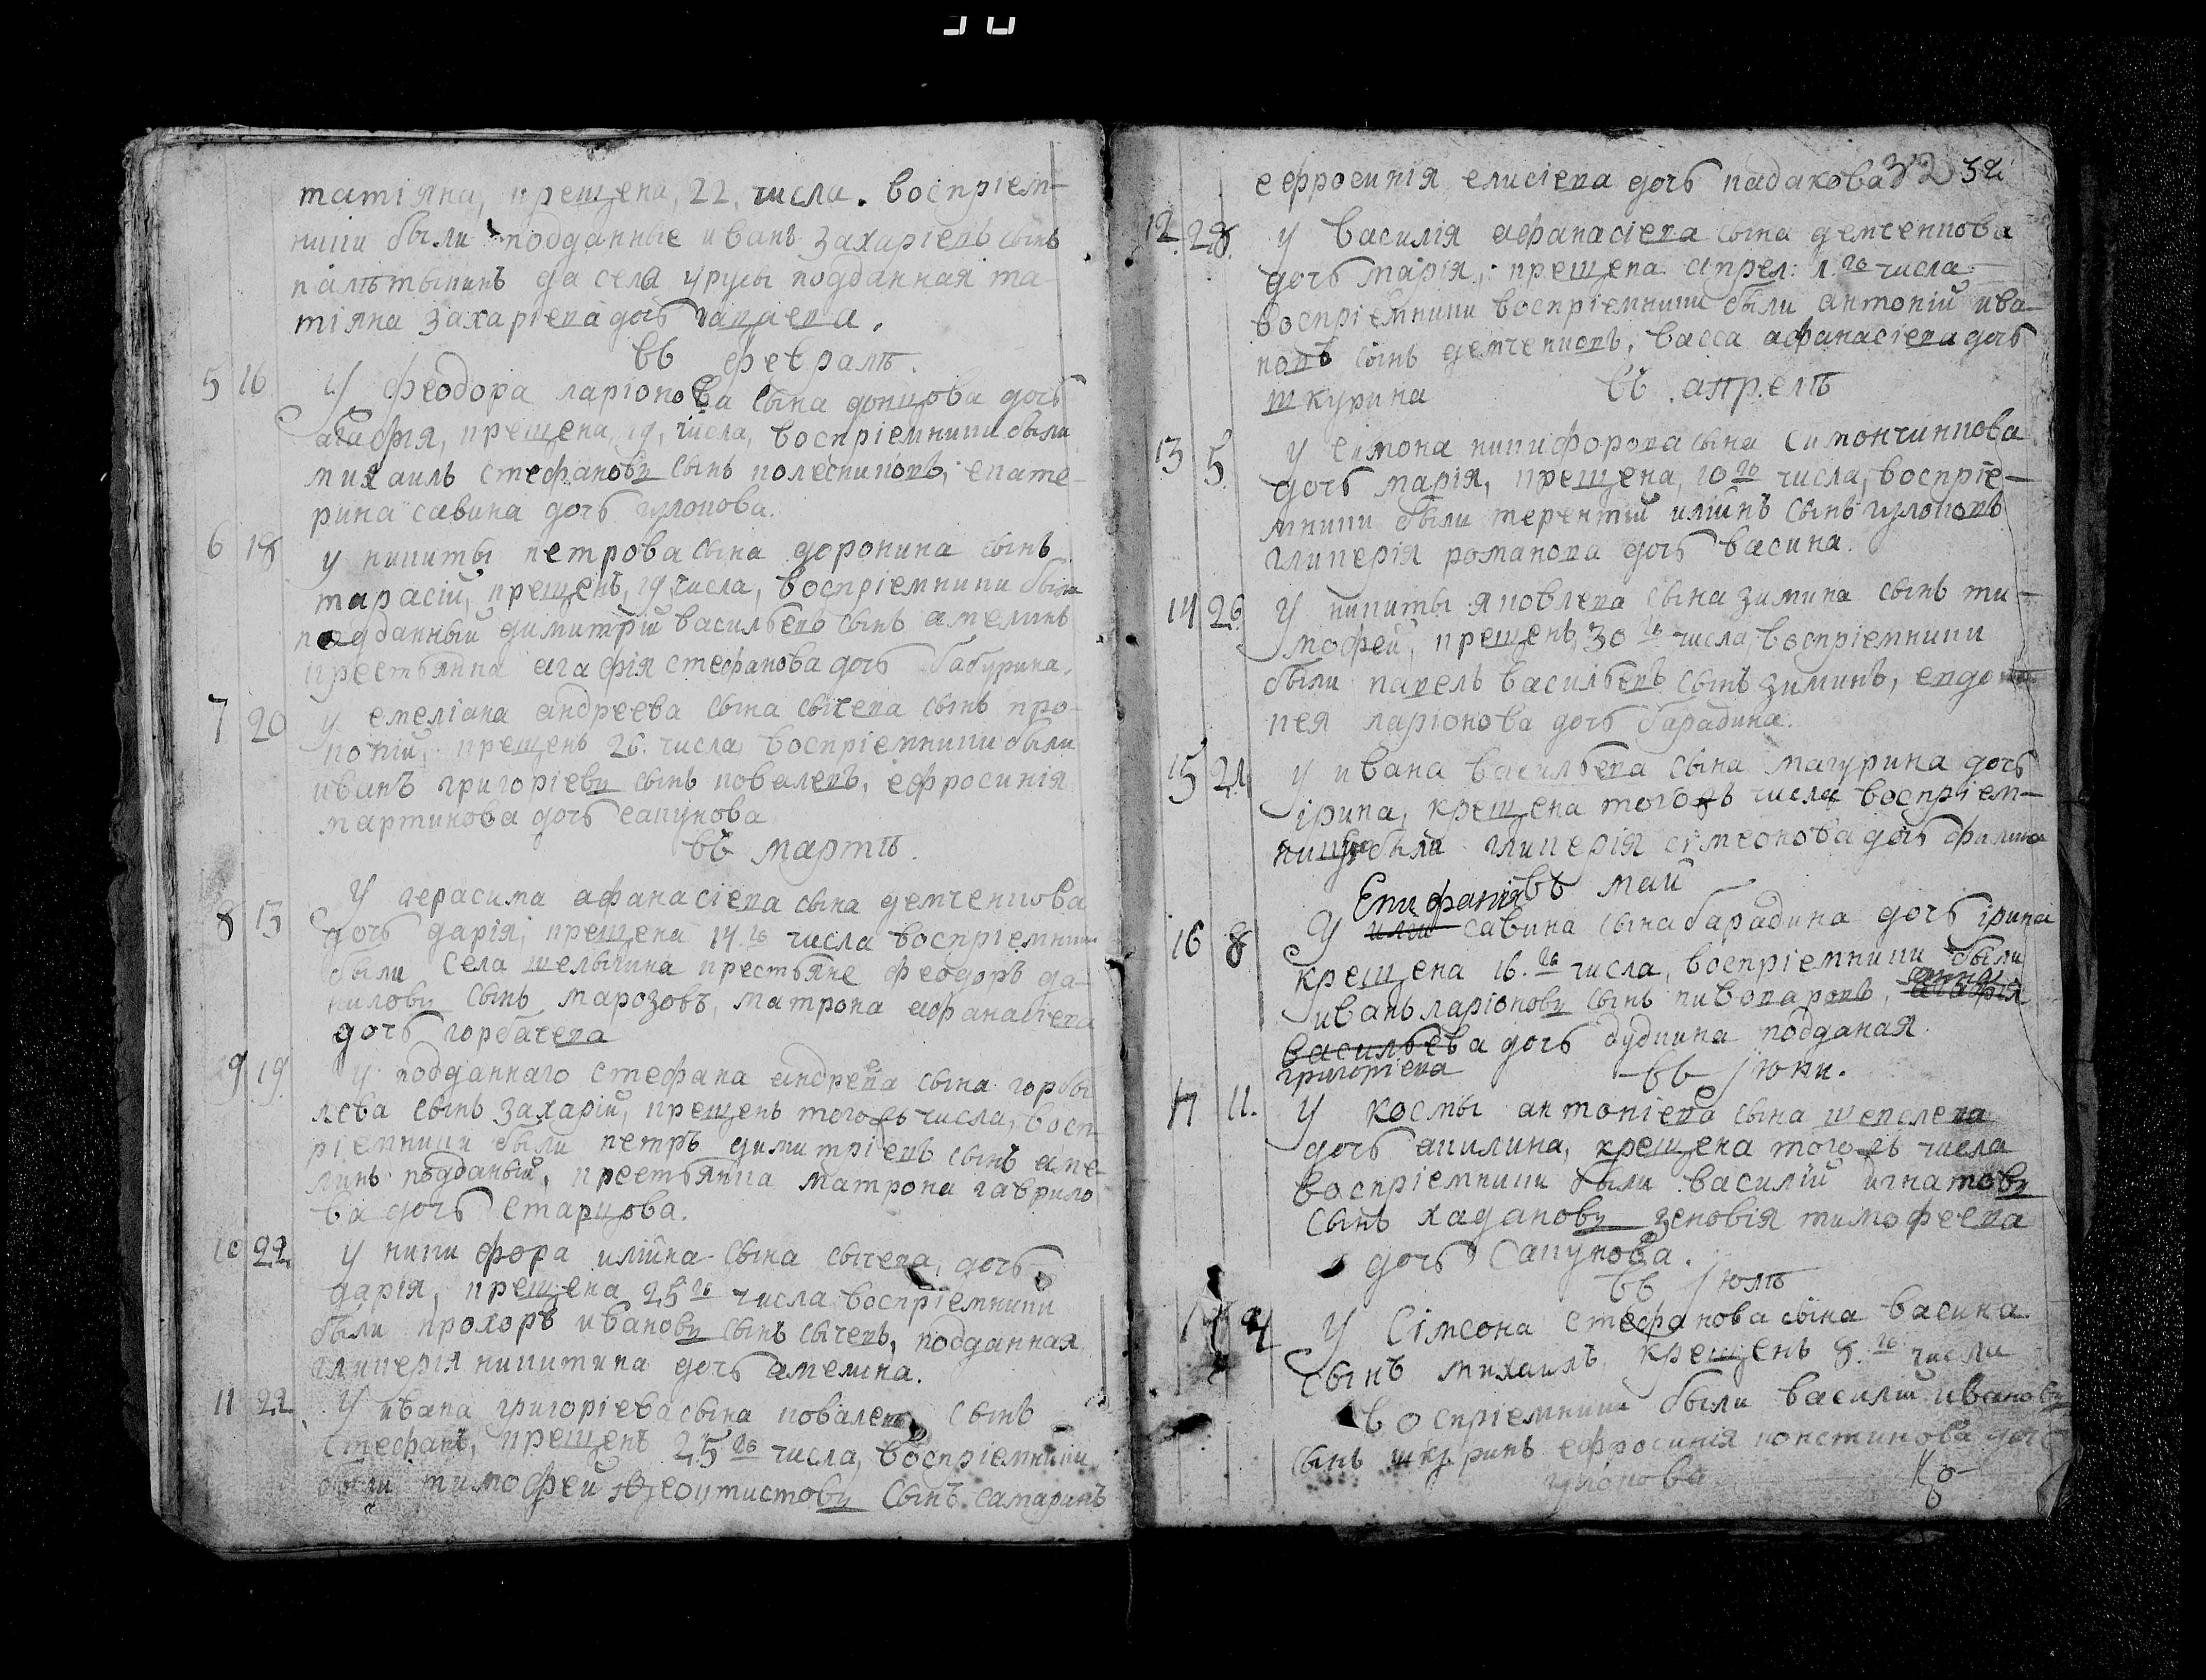 татіяна, крещена, 22, числа. воспріем-
ники были подданные иванъ захаріевъ сынъ
да села урусы подданная та-
тіяна захаріева дочь
въ февралѣ.
5 16 У феодора ларіонова сына донцова дочь
агафія, крещена, 19, числа, воспріемники были
михаилъ стефановъ сынъ колесниковъ, екате-
рина савина дочь
6 18 у никиты петрова сына доронина сынъ
тарасій, крещенъ, 19, числа, воспріемники были
подданный димитрій васильевъ сынъ амелинъ
крестьянка агафія стефанова дочь бабурина.
7 20 у емеліана андреева сына сычева сынъ про-
копій, крещенъ 26. числа, воспріемники были
иванъ григоріевъ сынъ ковалевъ, ефросинія
мартинова дочь сапунова
въ мартѣ.
8 13 У герасима афанасіева сына демченкова
дочь дарія, крещена 14 го числа воспріемники
были села крестьяне феодоръ да-
ниловъ сынъ марозовъ, матрона афанасіева
дочь горбачева
9 19. у подданнаго стефана андрева сына горбы
лева сынъ захарій, крещенъ тогожъ числа, восп-
ріемники были петръ димитріевъ сынъ аме-
линъ подданый, крестьянка матрона гаврило
ва дочь старцова.
10 22 у никифора илійна сына сычева, дочь
дарія, крещена 25 го числа воспріемники
были прохоръ ивановъ сынъ сычевъ, подданная
гликерія никитина дочь амелина.
11 22 У ивана григоріева сына ковалева сынъ
стефанъ, крещенъ 25 го числа, воспріемники
были тимофей сынъ самаринъ
ефросинія елисіева дочь кадакова 32 32
12 28. у василія афанасіева сына демченкова
дочь марія, крещена апрел: 1 го числа
воспріемники воспріемники были антоній ива-
новъ сынъ демченковъ, васса афанасіева дочь
шкурина въ апрелѣ
13 5. у симона никифорова сына симончинкова
дочь марія, крещена, 10 го числа, воспріе-
мники были терентій илійнъ сынъ
гликерія романова дочь васина.
14 26 У никиты яковлева сына зимина сынъ ти-
мофей, крещенъ, 30 го числа, воспріемники
были павелъ васильевъ сынъ зиминъ, евдо
кея ларіонова дочь барадина.
15 21 у ивана васильева сына мачурина дочь
ірина, крещена тогожъ числа воспріем-
были гликерія сімеонова дочь
Епифанія въ май
16 8 У савина сына барадина дочь ірина
крещена 16. го числа, воспріемники были
иванъ ларіоновъ сынъ пивоваровъ, анна агафія
васильева дочь дудкина подданая
григоріева въ іюни.
17 11. У космы антоніева сына шевелева
дочь акилина, крещена тогожъ числа
воспріемники были василій игнатовъ
сынъ хадановъ зеновія тимофеева
дочь сапунова.
въ іюлѣ
4 У Сімеона стефанова сына васина
сынъ михаилъ, крещенъ 8. го числа
воспріемники были василій ивановъ
сынъ ефросинія констинова дочь